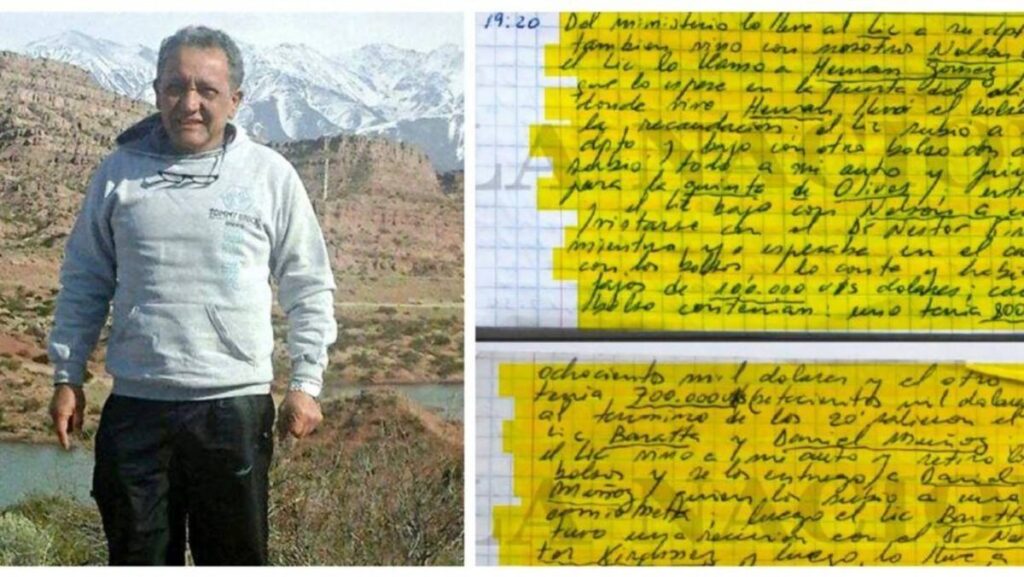 TOMMY
19:20 Del ministerio lo lleve al Lic a su dpto
tambien vino con nosotros Nelson
el Lic lo llamo a Hernan Gomez
que lo espere en la puerta del
donde vive Hernan llevó el bolso
la recaudacion: el Lic subio a
dpto y bajo con otro bolso con
subio todo a mi auto y
para la quinta de Olivos,
el Lic bajo con Nelson a
con el Dr Nestor
mientras yo esperaba en el
con los bolsos, lo conte y
fajos de 100.000 U$S dolares;
bolso contenian: uno tenia 800
ochociento mil dolares y el otro
tenia 700.000 U$S (setecientos mil dolares
al termino de los 20
Lic Baratta y Daniel Muñoz
el Lic vino a mi auto y retiro
bolsos y se los entrego a Daniel
Muñoz quien los subio a una
camioneta, luego el Lic Baratta
tuvo una reunion con el Dr Nes-
tor Kirchner y luego lo lleve a
LA NACION
LA NACION